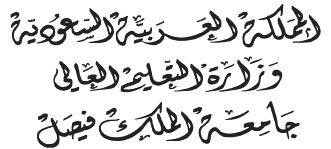 المملكة العربية السعودية
وزارة التعليم العالي
جامعة الملك فيصل